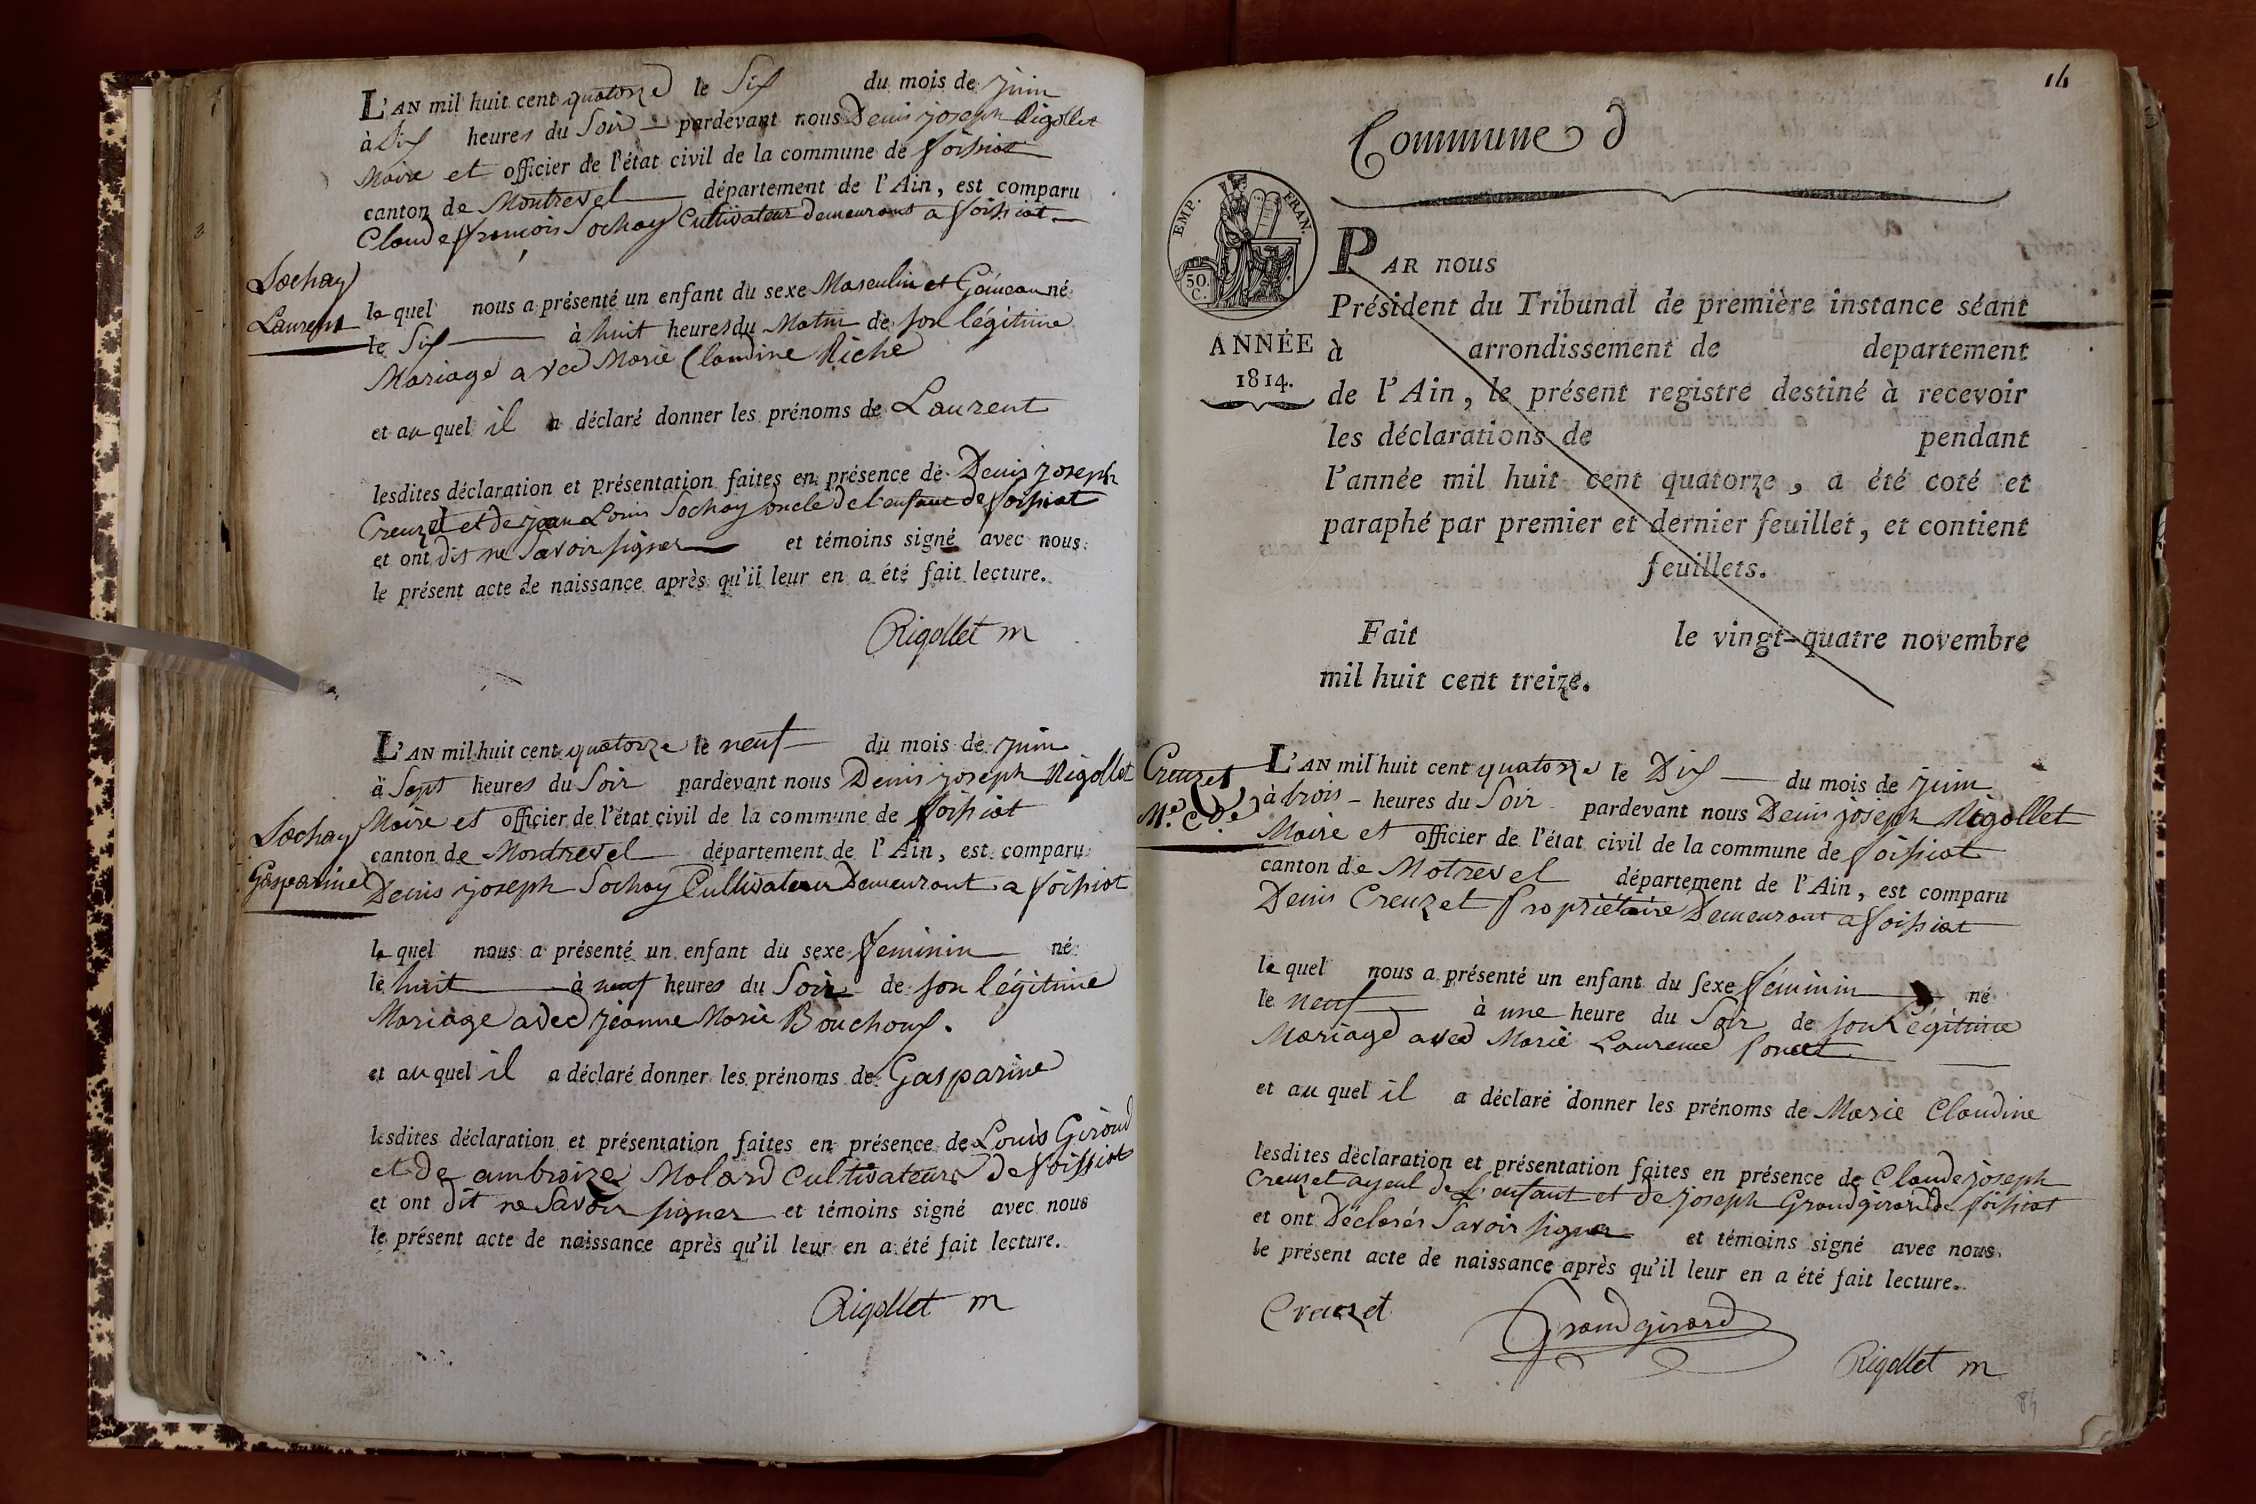 L'AN mil huit cent quatorze le Six du mois de juin
à Six heures du Soir pardevant nous Denis joseph Rigollet
Maire et officier de l'état civil de la commune de foissiat
canton de Montrevel département de l'Ain, est comparu
Claude françois Sochay Cultivateur Demeurant a foissiat
Sochay
Laurent
le quel nous a présenté un enfant du sexe Masculin et Gémeau né
le Six à huit heures du Matin de son légitime
Mariage avec Marie Claudine Riche
et au quel il a déclaré donner les prénoms de Laurent
lesdites déclaration et présentation faites en présence de Denis joseph
Creuzet et de jean Louis Sochay oncle de l'enfant de foissiat
et ont dit ne Savoir signer et témoins signé avec nous
le présent acte de naissance après qu'il leur en a été fait lecture.
Rigollet m
L'AN mil huit cent quatorze le neuf du mois de juin
à Sept heures du Soir pardevant nous Denis joseph Rigollet
Maire et officier de l'état civil de la commune de foissiat
Sochay
Gasparine
canton de Montrevel département de l'Ain, est comparu
Denis joseph Sochay Cultivateur Demeurant a foissiat
le quel nous a présenté un enfant du sexe feminin né
le huit à neuf heures du Soir de son légitime
Mariage avec jeanne Marie Bouchoux.
et au quel il a déclaré donner les prénoms de Gasparine
lesdites déclaration et présentation faites en présence de Louis Giroud
et de ambroize Molard Cultivateurs de foissiat
et ont dit ne Savoir signer et témoins signé avec nous
le présent acte de naissance après qu'il leur en a été fait lecture.
Rigollet m
14
Commune d
EMP. FRAN.
50. C.
ANNÉE
1814.
PAR nous
Président du Tribunal de première instance séant
à arrondissement de departement
de l'Ain, le présent registre destiné à recevoir
les déclarations de pendant
l'année mil huit cent quatorze, a été coté et
paraphé par premier et dernier feuillet, et contient
feuillets.
Fait le vingt-quatre novembre
mil huit cent treize.
Creuzet
Me. Cde.
L'AN mil huit cent quatorze le Dix du mois de juin
à trois heures du Soir pardevant nous Denis joseph Rigollet
Maire et officier de l'état civil de la commune de foissiat
canton de Motrevel département de l'Ain, est comparu
Denis Creuzet Propriétaire Demeurant a foissiat
le quel nous a présenté un enfant du sexe féminin né
le neuf à une heure du Soir de son Légitime
Mariage avec Marie Laurence Poncet
et au quel il a déclaré donner les prénoms de Marie Claudine
lesdites déclaration et présentation faites en présence de Claude joseph
Creuzet ayeul de L'enfant et de joseph Grandgirard de foissiat
et ont Déclarés Savoir signer et témoins signé avec nous
le présent acte de naissance après qu'il leur en a été fait lecture.
Creuzet
Grandgirard
Rigollet m